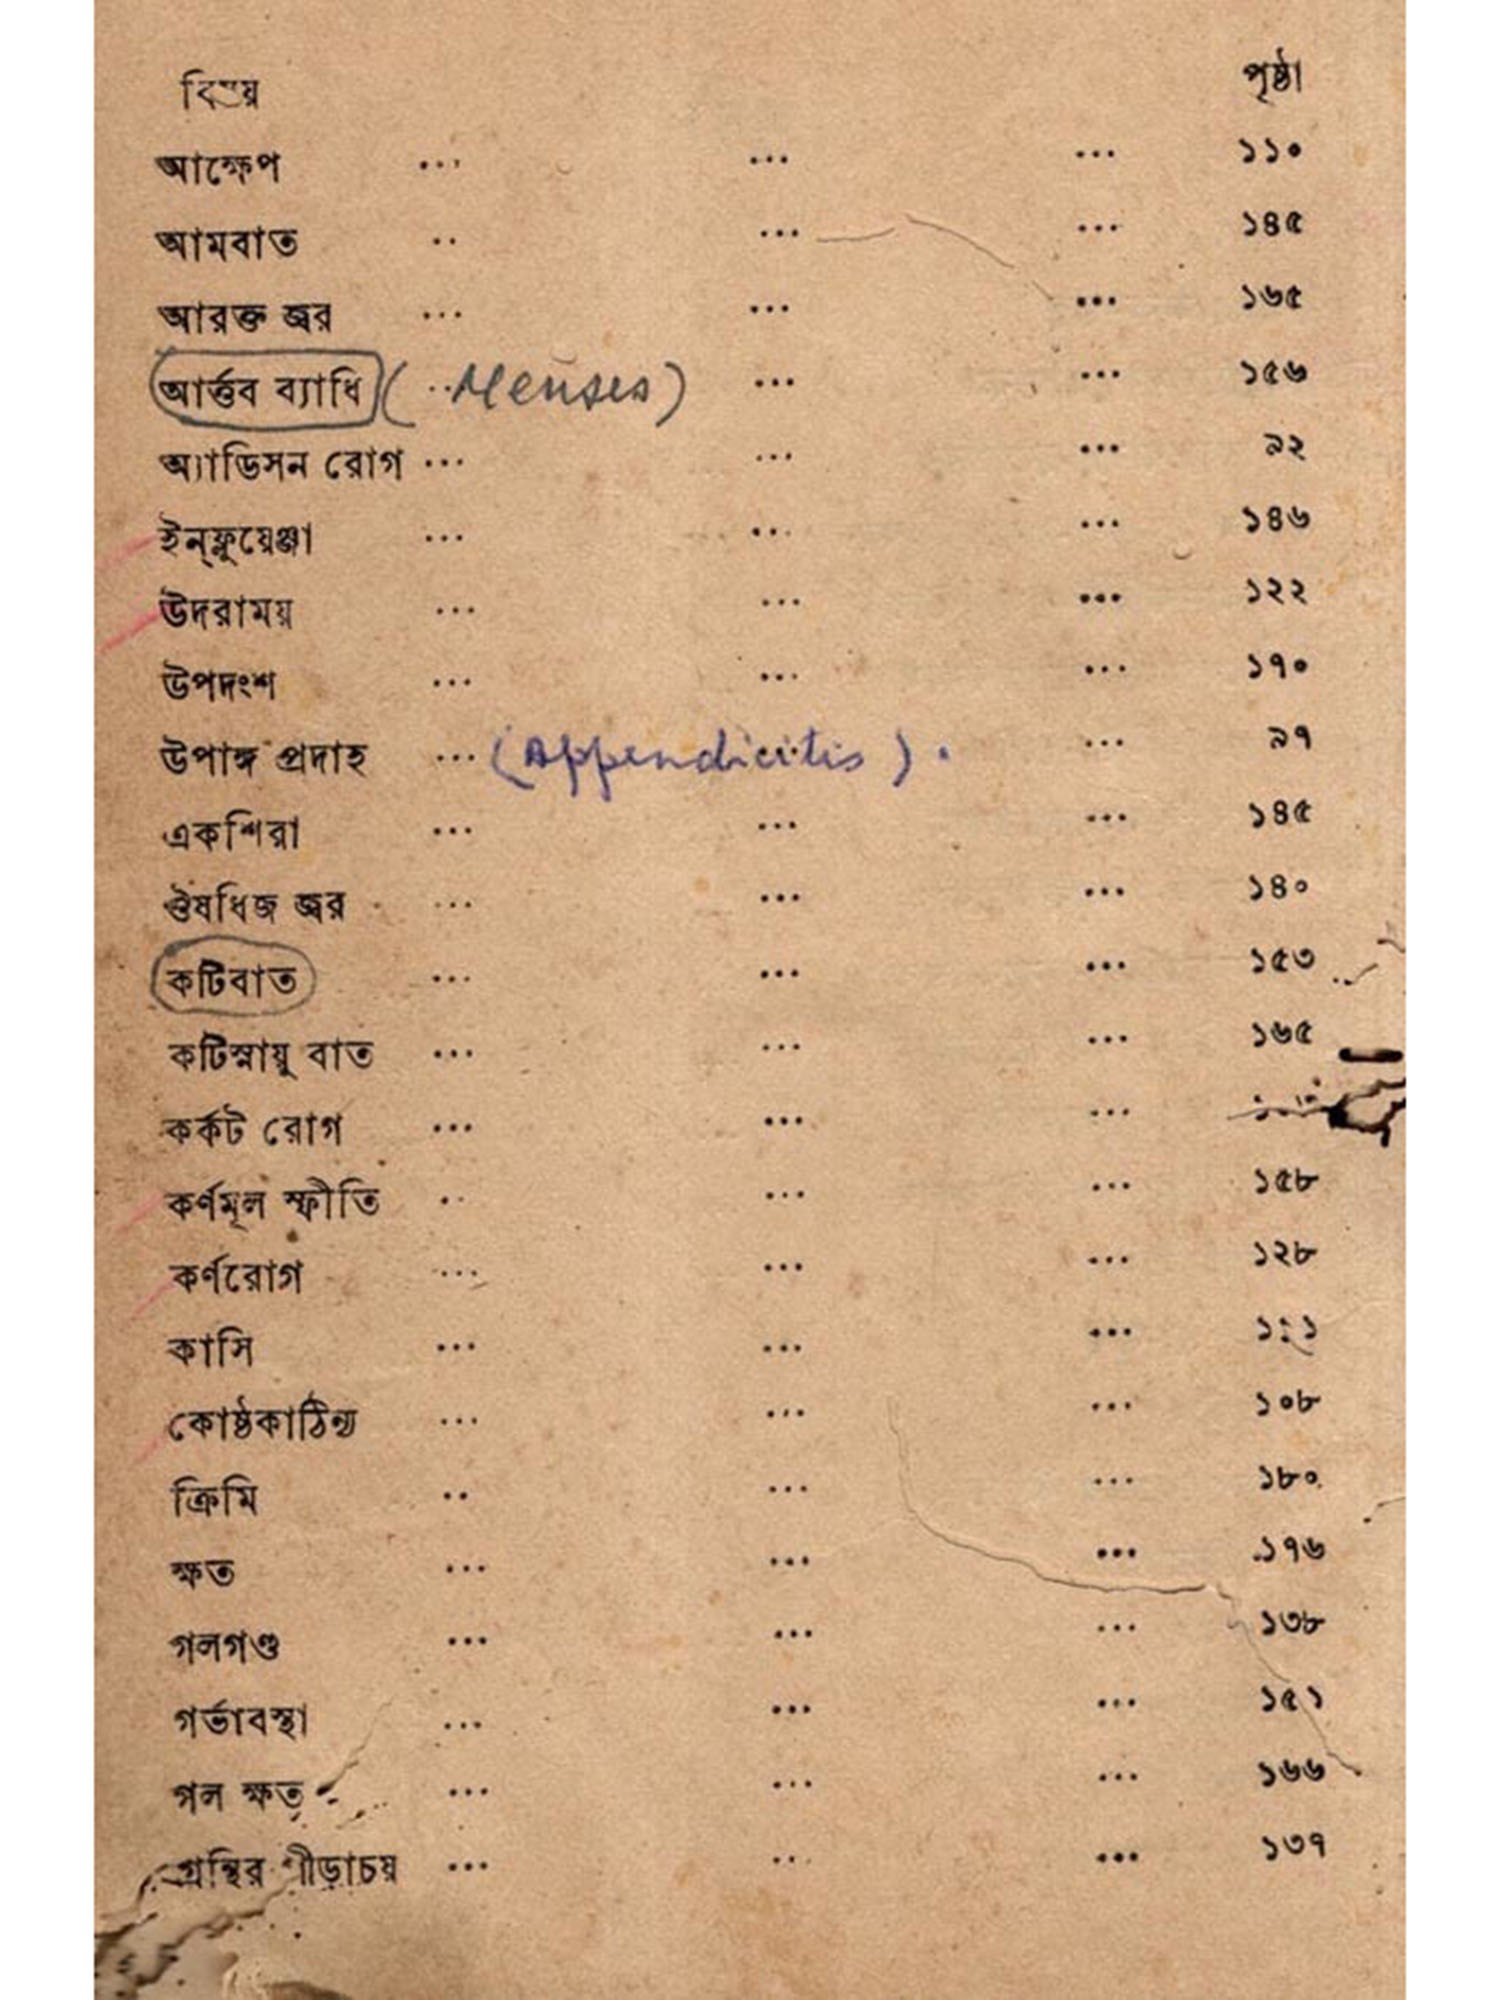 বিষয় পৃষ্ঠা
আক্ষেপ ... ... ... ১১০
আমবাত .. ... ... ১৪৫
আরক্ত জ্বর ... ... ... ১৬৫
আর্ত্তব ব্যাধি (Menses) ... ... ১৫৬
অ্যাডিসন রোগ ... ... ... ৯২
ইন্‌ফ্লুয়েঞ্জা ... ... ... ১৪৬
উদরাময় ... ... ... ১২২
উপদংশ ... ... ... ১৭০
উপাঙ্গ প্রদাহ ... (Appendicitis). ... ৯৭
একশিরা ... ... ... ১৪৫
ঔষধিজ জ্বর ... ... ... ১৪০
কটিবাত ... ... ... ১৫৩
কটিস্নায়ু বাত ... ... ... ১৬৫
কর্কট রোগ ... ... ...
কর্ণমূল স্ফীতি .. ... ... ১৫৮
কর্ণরোগ ... ... ... ১২৮
কাসি ... ... ...
কোষ্ঠকাঠিন্য ... ... ... ১০৮
ক্রিমি .. ... ... ১৮০
ক্ষত ... ... ... ১৭৬
গলগণ্ড ... ... ... ১৩৮
গর্ভাবস্থা ... ... ... ১৫১
গল ক্ষত ... ... ... ১৬৬
গ্রন্থির পীড়াচয় ... ... ... ১৩৭